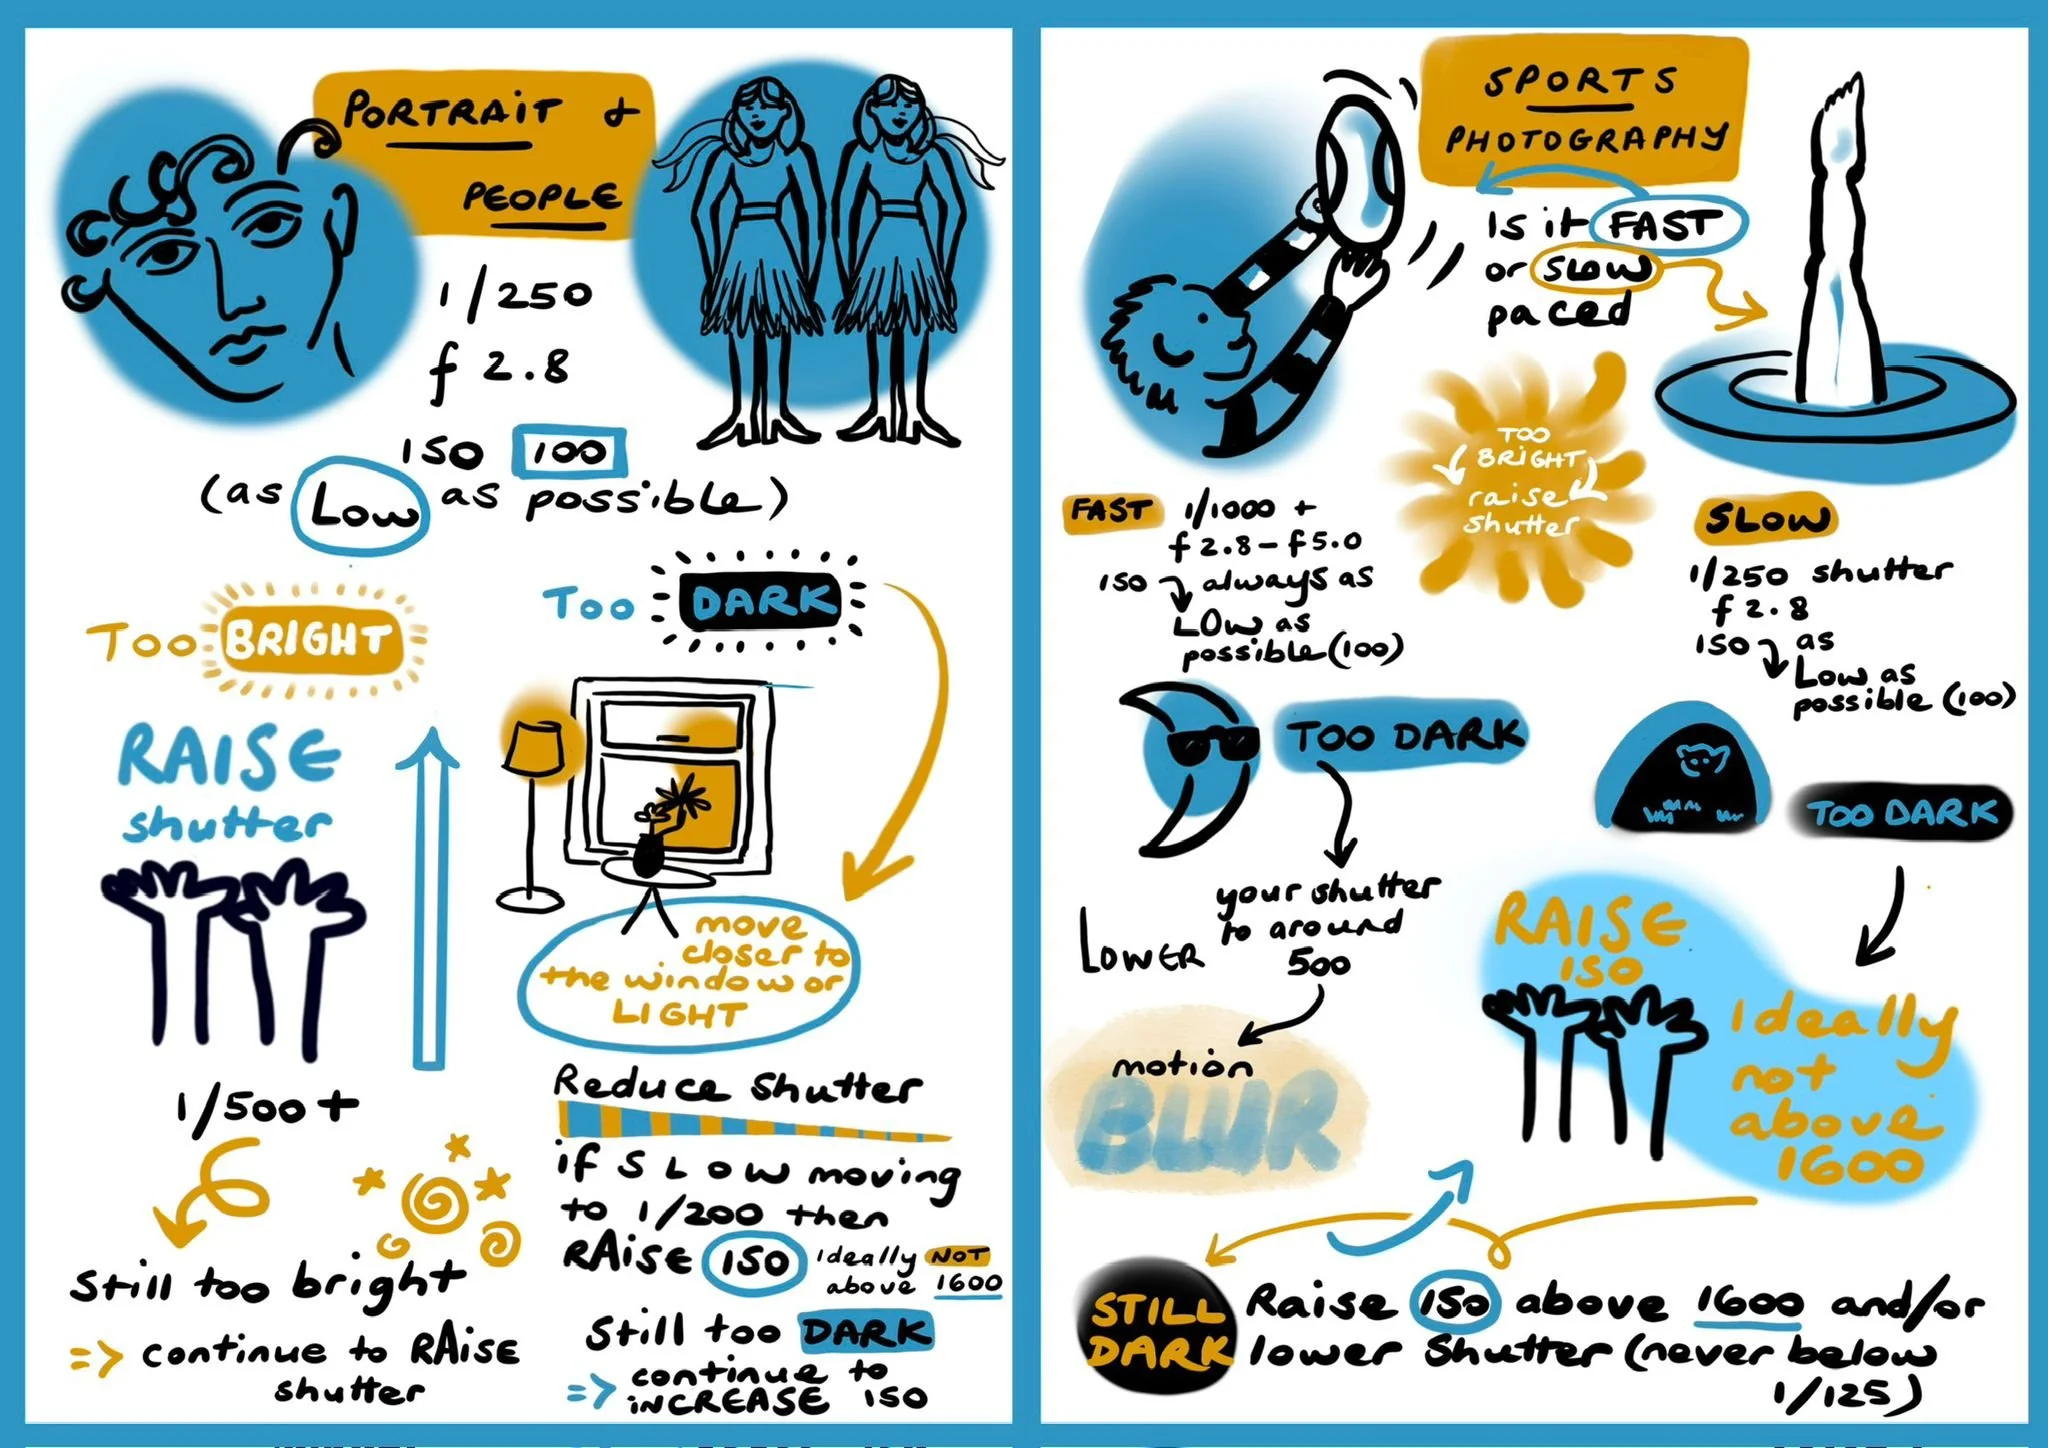 PORTRAIT &
PEOPLE
1/250
f 2.8
ISO 100
(as Low as possible)
Too BRIGHT
RAISE
shutter
1/500+
Still too bright
=> continue to RAISE
shutter
Too DARK
move
closer to
the window or
LIGHT
Reduce Shutter
if SLOW moving
to 1/200 then
RAISE ISO Ideally NOT
above 1600
Still too DARK
=> continue to
INCREASE ISO
SPORTS
PHOTOGRAPHY
Is it FAST
or SLOW
paced
TOO
BRIGHT
raise
shutter
FAST 1/1000 +
f 2.8 - f 5.0
ISO always as
LOW as
possible (100)
SLOW
1/250 shutter
f 2.8
ISO as
Low as
possible (100)
TOO DARK
LOWER your shutter
to around
500
motion
BLUR
TOO DARK
RAISE
ISO
Ideally
not
above
1600
STILL
DARK
Raise ISO above 1600 and/or
lower Shutter (never below
1/125)